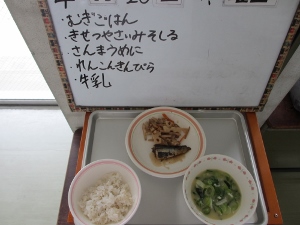 ・むぎごはん
・きせつやさいみそしる
・さんまうめに
・れんこんきんぴら
・牛乳